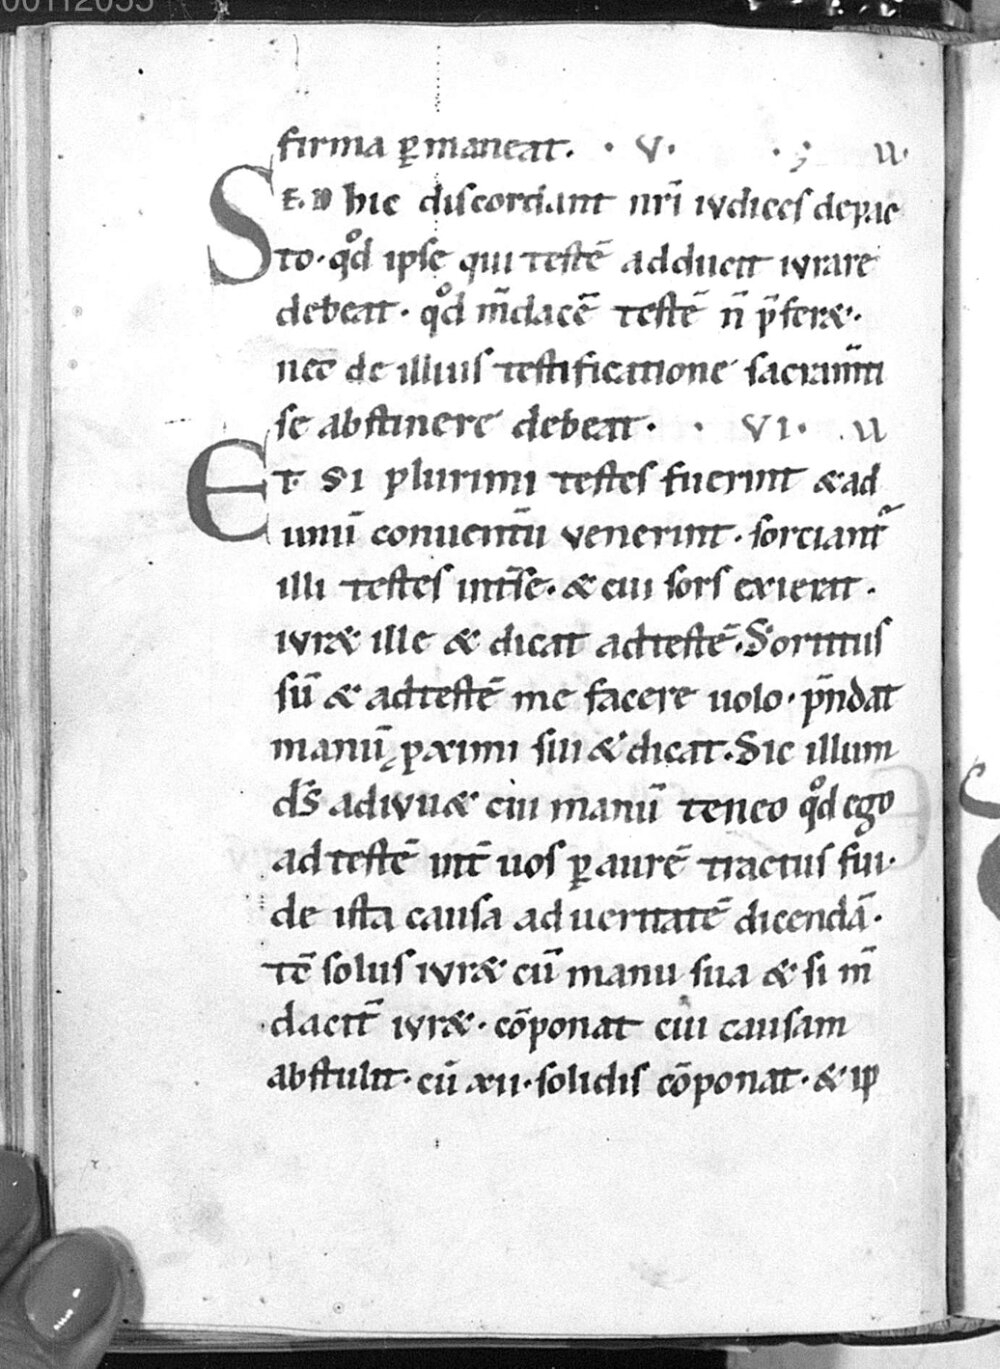 00112055
firma ꝑmaneat. · V· · ; u·
SED hic discordant nr̄i iudices de pac
to· qͦd ipse qui testē adducit iurare
debeat· qͦd m̄dacē testē n̄ p̄feræ·
nec de illius testificatione sacram̄ti
se abstinere debeat· · VI· .u
ET SI plurimi testes fuerint & ad
unū conuentū uenerint· sorciant᷑
illi testes int̄ se· & cui sors exierat·
iur& ille & dicat ad testē· Sortitus
sū & ad testē me facere uolo· p̄ndat
manū ꝓximi sui & dicat· Sic illum
d̄s adiuu& cui manū teneo qͦd ego
ad testē int̄ uos ꝑ aurē tractus fui·
de ista causa ad ueritatē dicendā·
tē solus iur& cū manu sua & si m̄
dacit̄ iur&· cōponat cui causam
abstulit· cū xii· solidis cōponat· & ip